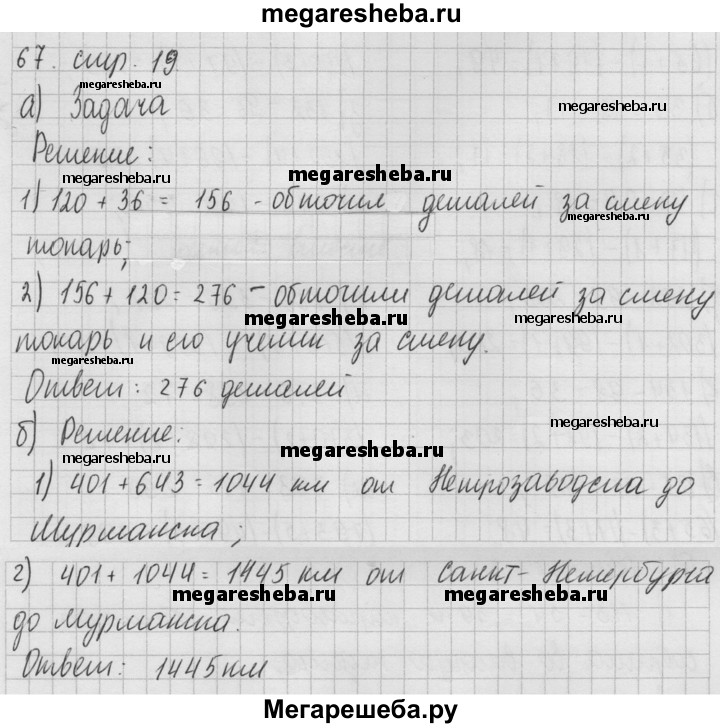 megaresheba.ru
67. стр. 19
megaresheba.ru
а) Задача
megaresheba.ru
Решение:
megaresheba.ru
megaresheba.ru
1) 120 + 36 = 156 - обточил деталей за смену
megaresheba.ru
токарь;
2) 156 + 120 = 276 - обточили деталей за смену
megaresheba.ru
megaresheba.ru
токарь и его ученик за смену.
megaresheba.ru
Ответ: 276 деталей
megaresheba.ru
б) Решение:
megaresheba.ru
megaresheba.ru
1) 401 + 643 = 1044 км от Петрозаводска до
Мурманска;
2) 401 + 1044 = 1445 км от Санкт-Петербурга
megaresheba.ru
megaresheba.ru
до Мурманска.
Ответ: 1445 км
Мегарешеба.ру